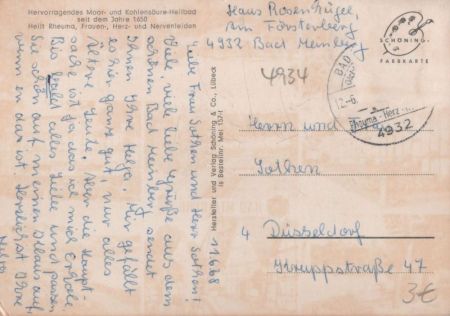 Hervorragendes Moor- und Kohlensäure-Heilbad
seit dem Jahre 1650
Heilt Rheuma, Frauen-, Herz- und Nervenleiden
Liebe Frau Sothen und Herr Sothen!
Viele, viele liebe Grüße aus dem
schönen Bad Meinberg sendet
Ihnen Ihre Helga. Mir gefällt
es hier ganz gut, nur alles
ältere Leute. Aber die Haupt-
sache ist ja, dass ich mich erhole.
Bis alles Liebe und passen
Sie schön auf meinen auf
wenn er da ist. Herzlichst Ihre
Helga
11.6.68
Hersteller und Verlag Schöning & Co., Lübeck
Bestellnr. Mei 13/1
Haus Rosenhügel,
Am Försterberg
4932 Bad Meinberg
4934
SCHÖNING-
FARBKARTE
BAD
12.-6.
Rheuma - Herz -
4932
Herrn und
Sothen
4 Düsseldorf
Kruppstraße 47
3€